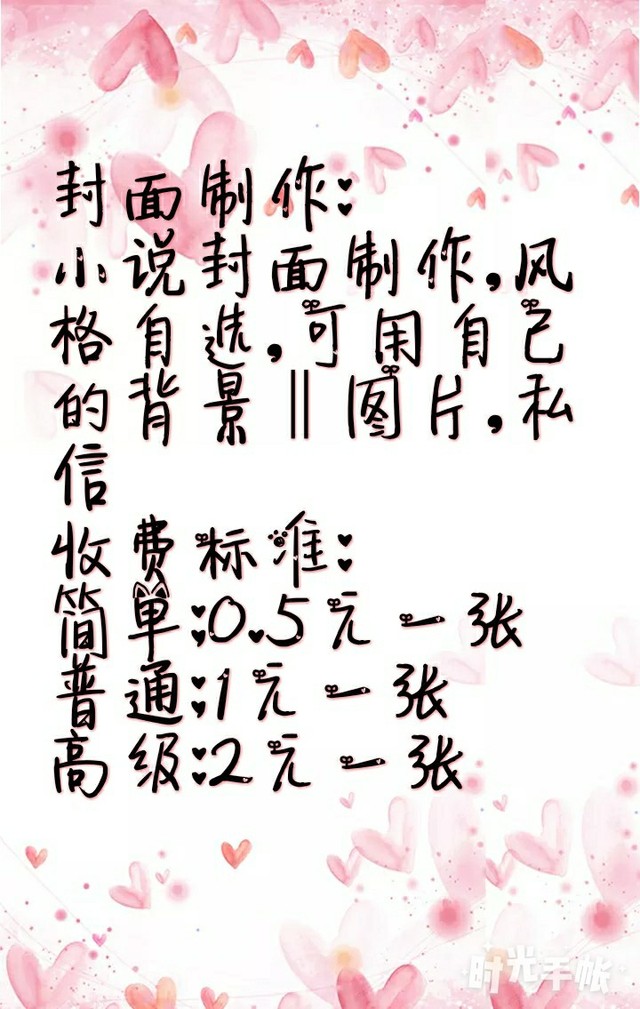 封面制作:
小说封面制作,风
格自选,可用自己
的背景||图片,私
信
收费标准:
简单;0.5元一张
普通;1元一张
高级:2元一张
时光手帐